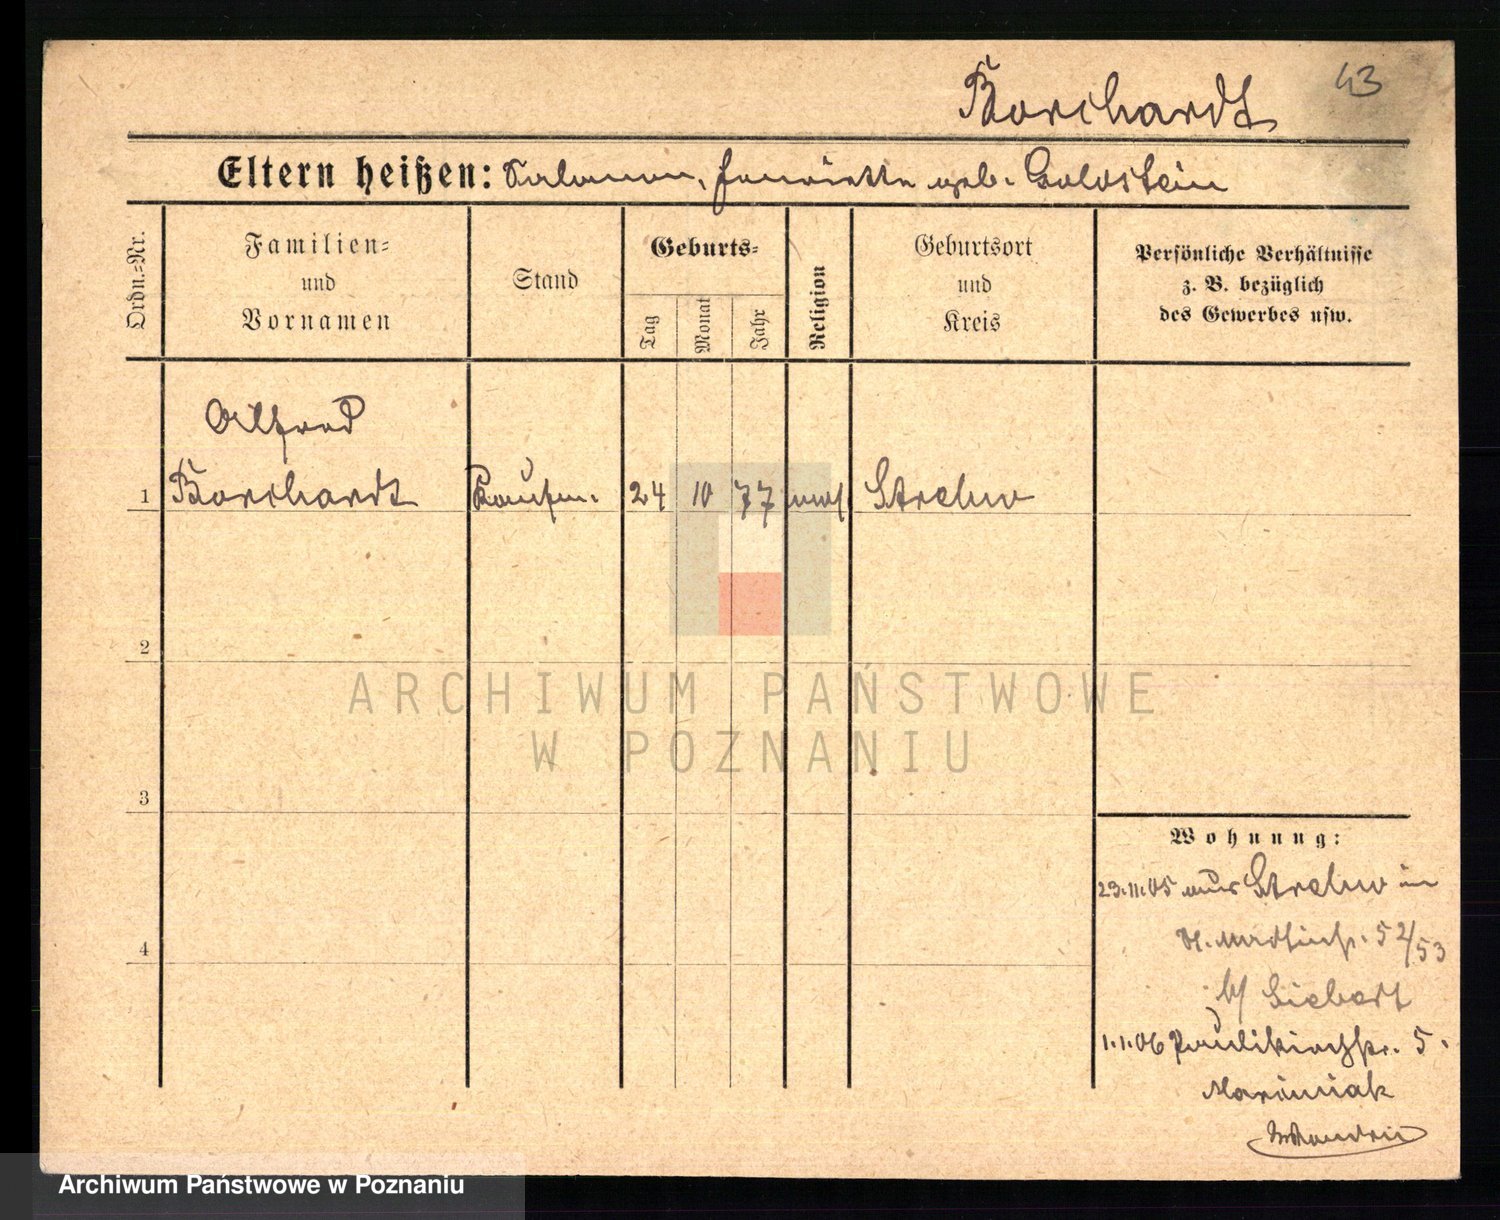 43
Borchardt
Eltern heißen: Salomon, Henriette geb. Goldstein
Ordn.=Nr.
Familien=
und
Vornamen
Stand
Geburts=
Tag
Monat
Jahr
Religion
Geburtsort
und
Kreis
Persönliche Verhältnisse
z. B. bezüglich
des Gewerbes usw.
Alfred
1 Borchardt Kaufm. 24 10 77 mos. Strelno
2
3
4
ARCHIWUM PAŃSTWOWE
W POZNANIU
Wohnung:
23.11.05 aus Strelno in
52/53
b/ Siebert
1.1.06 Paulikirchstr. 5.
Marciniak
Archiwum Państwowe w Poznaniu